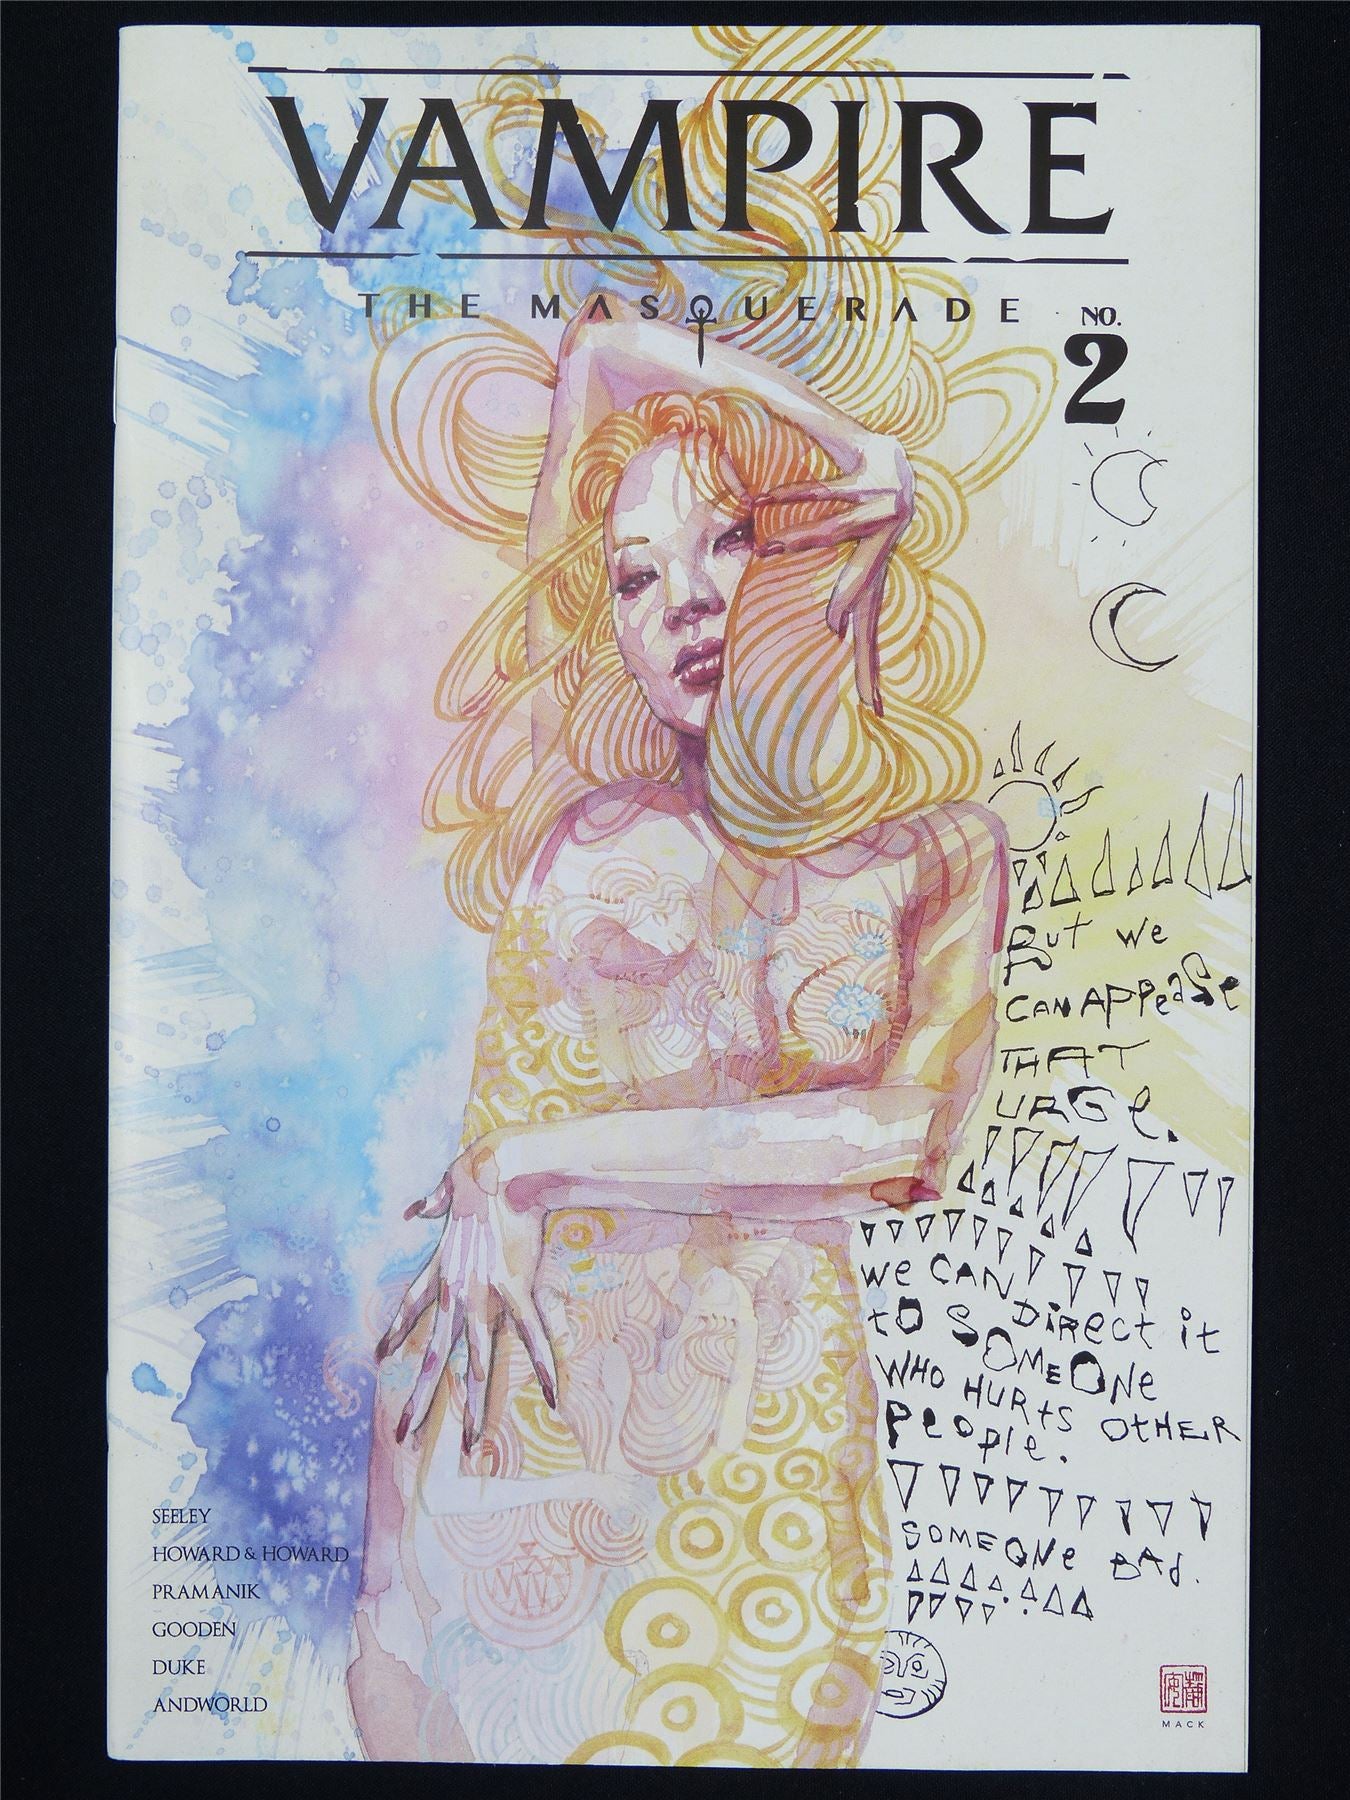 VAMPIRE
THE MASQUERADE
NO.
2
But we
CAN APPeaSe
THAT
URGe.
we CAN DiRect it
tO SOMeONe
WHO HURtS OtHER
PeOPle.
SOMEONe BAd.
SEELEY
HOWARD & HOWARD
PRAMANIK
GOODEN
DUKE
ANDWORLD
MACK